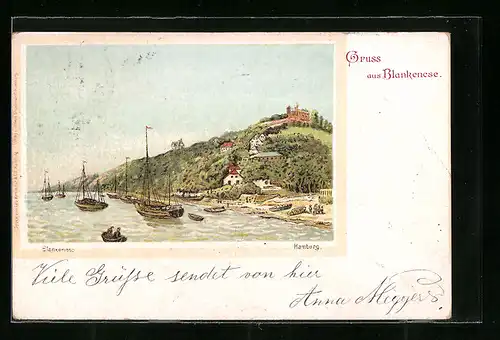 Gruss
aus Blankenese.
Blankenese
Hamburg.
Viele Grüsse sendet von hier
Anna